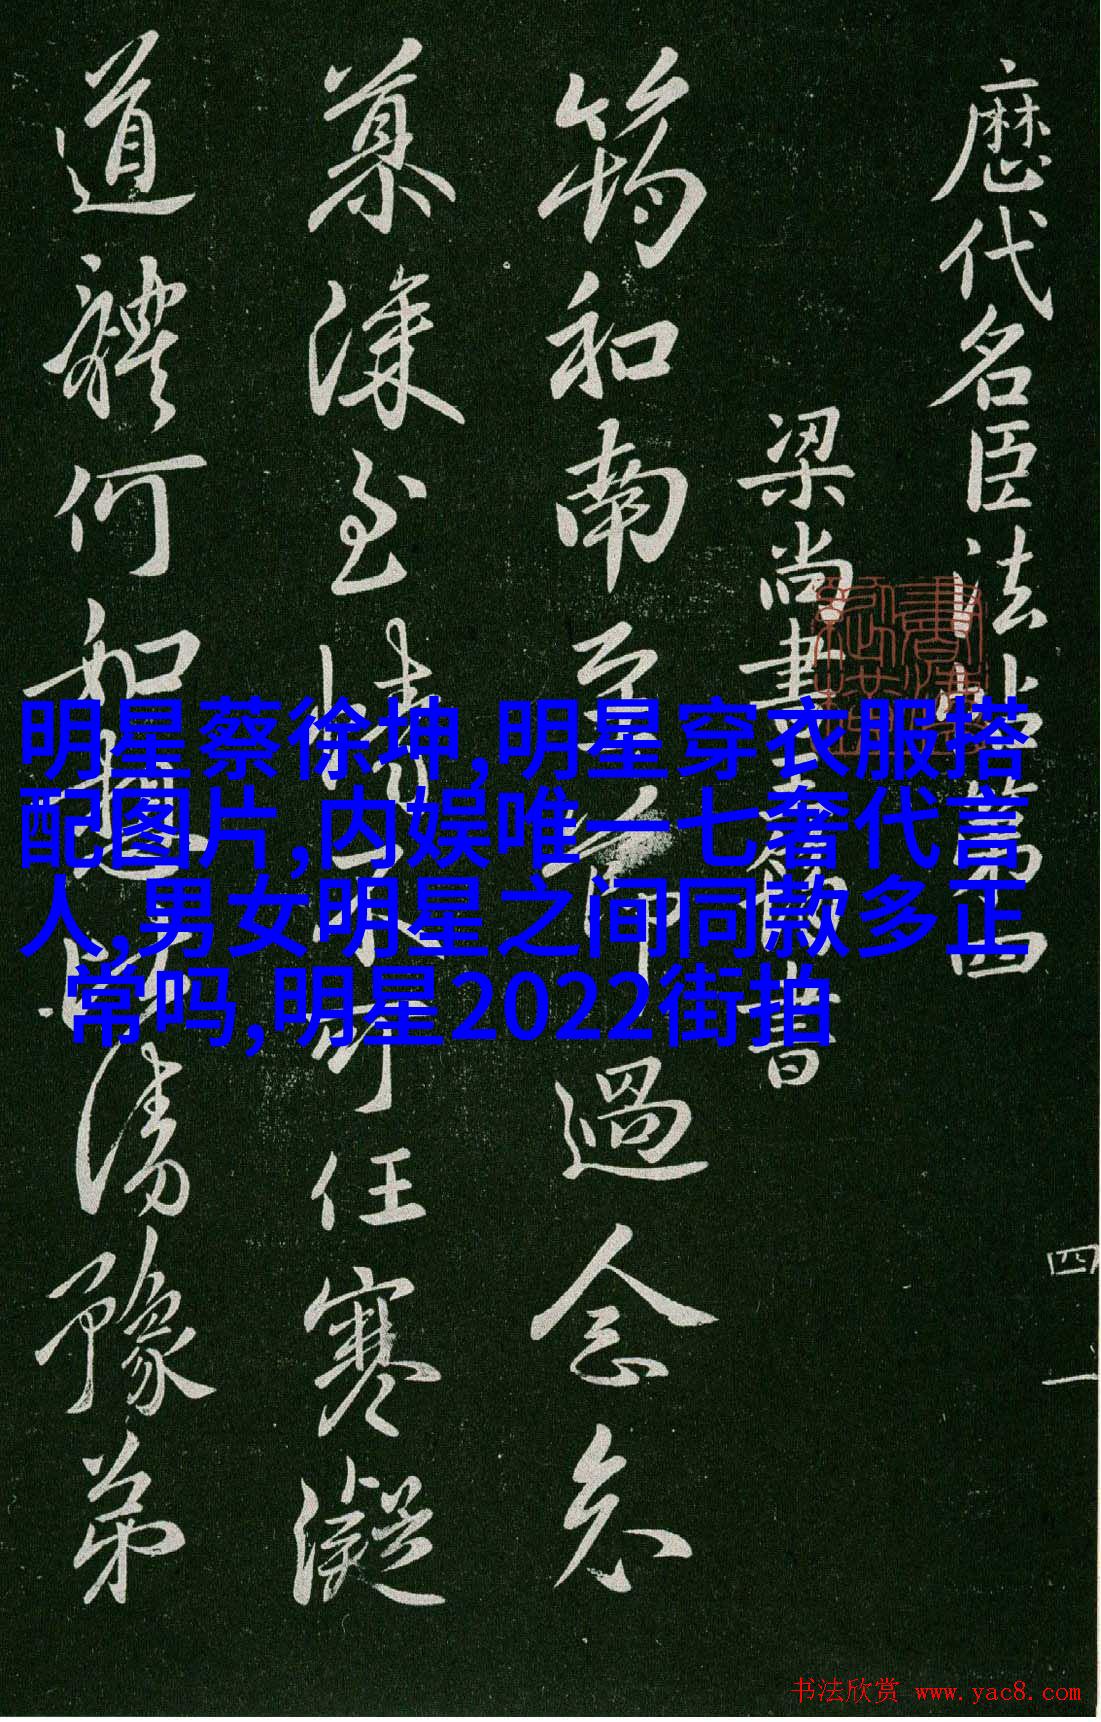 歷代名臣法帖第四
梁尚書王筠書
筠和南至節過念念
慕深至情不可任寒凝
道體何如想比清豫弟
四
一
明星蔡徐坤,明星穿衣服搭
配图片,内娱唯一七奢代言
人,男女明星之间同款多正
常吗,明星2022街拍
书法欣赏 www.yac8.com